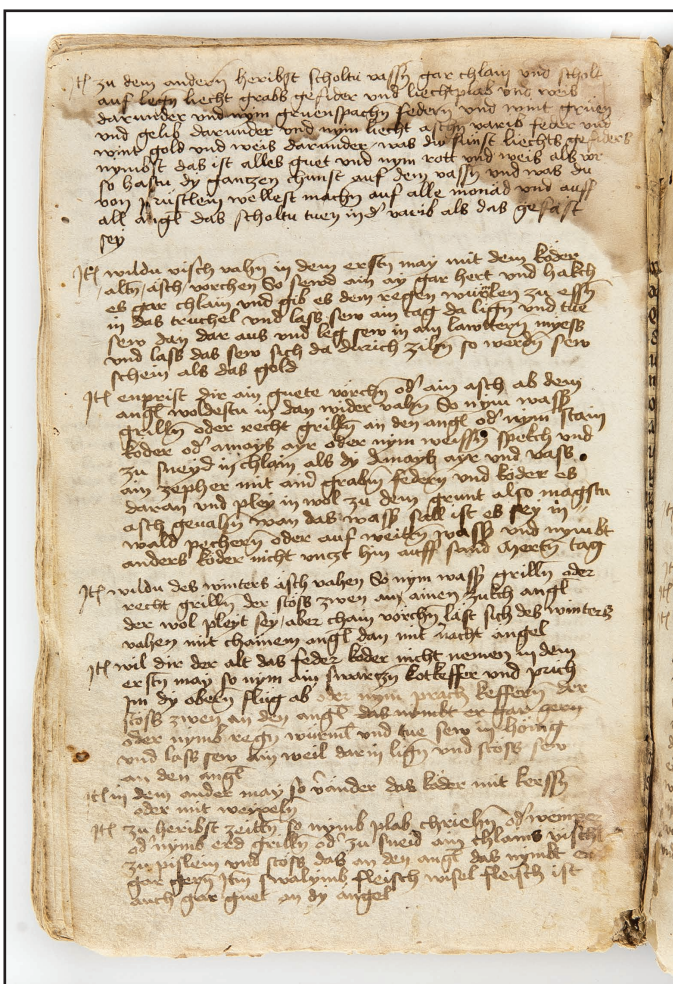 Jtē zu dem andern heribst scholtu vassñ gar chlain und scholt
auf legñ liecht grabs gefider und liechtplab und weis
darunder und nym gruenspachñ federn und nimt gruen
und gelib darunder und nym liecht aschñ varib feder und
nimt gold und weis darunder was du sünst liechts gefiders
nymbst das ist alles guet und nym rott und weis als vor
so hastu dy gantzen chunst auf dem vassñ und was du
von prustlein wellest machñ auf alle monad und auff
all angl das scholtu tuen in der varib als das gefast
sey
Jtē wildu visch vahñ in dem erstñ may mit dem koder
altñ asch vorchen So sewd ain ay gar hert und hakch
es gar chlain und gib es dem regñ würmen zu essñ
in das truchel und lass sew ain tag da ligñ und tue
sew dan dar aus und leg sew in ain lawttern myess
und lass das sew sich da durich zihñ so werdñ sew
schein als das gold
Jtē enprist dir ain guete vorchñ oď ain asch ab dem
angl woldestu in dan wider vahñ So nym wassˢ
grilln oder recht grillñ an den angl oď nym stain
koder oď amays ayr oder nym weissñ spekch und
zu sneyd in chlain als dy amays ayr und vass
ain zepher mit aind grabñ federñ und koder es
daran und pley in wol zu dem grunt also magstu
asch gevahñ wan das wassˢ vall ist es sey in
wald pechern oder auf weittñ wassˢ und nymbt
anders koder nicht vnczt hin auff sand mertñ tag
Jtē wildu des winters äsch vahen So nym wassˢ grillñ oder
recht grillñ der stoss zwen an ainen zukch angl
der wol pleyt sey aber chain vorchñ läst sich des winters
vahen mit chainem angl dan mit nacht angel
Jtē wil dir der alt das feder koder nicht nemen in dem
erstñ may so nym ain swartzn kotkeffer und prich
im dy obern flüg ab oder nym prach keffern der
stoss zwen an den angl das nymbt er gar gern
oder nymb regñ würmˡ und tue sew in hönig
und lass sew ain weil darin ligñ und stoss sew
an den angl
Jtē in dem ander may so vänder das koder mit kerssñ
oder mit weypelñ
Jtē zu heribst zeittñ so nymb plab chriehñ oď wemper
oď nymb erd grillñ oď zu sneid ain chlains vischl
zu pislein und stoss das an den angl das nymbt er
gar gerñ Jtm swalymb fleisch wisel fleisch ist
auch gar guet an dy angel